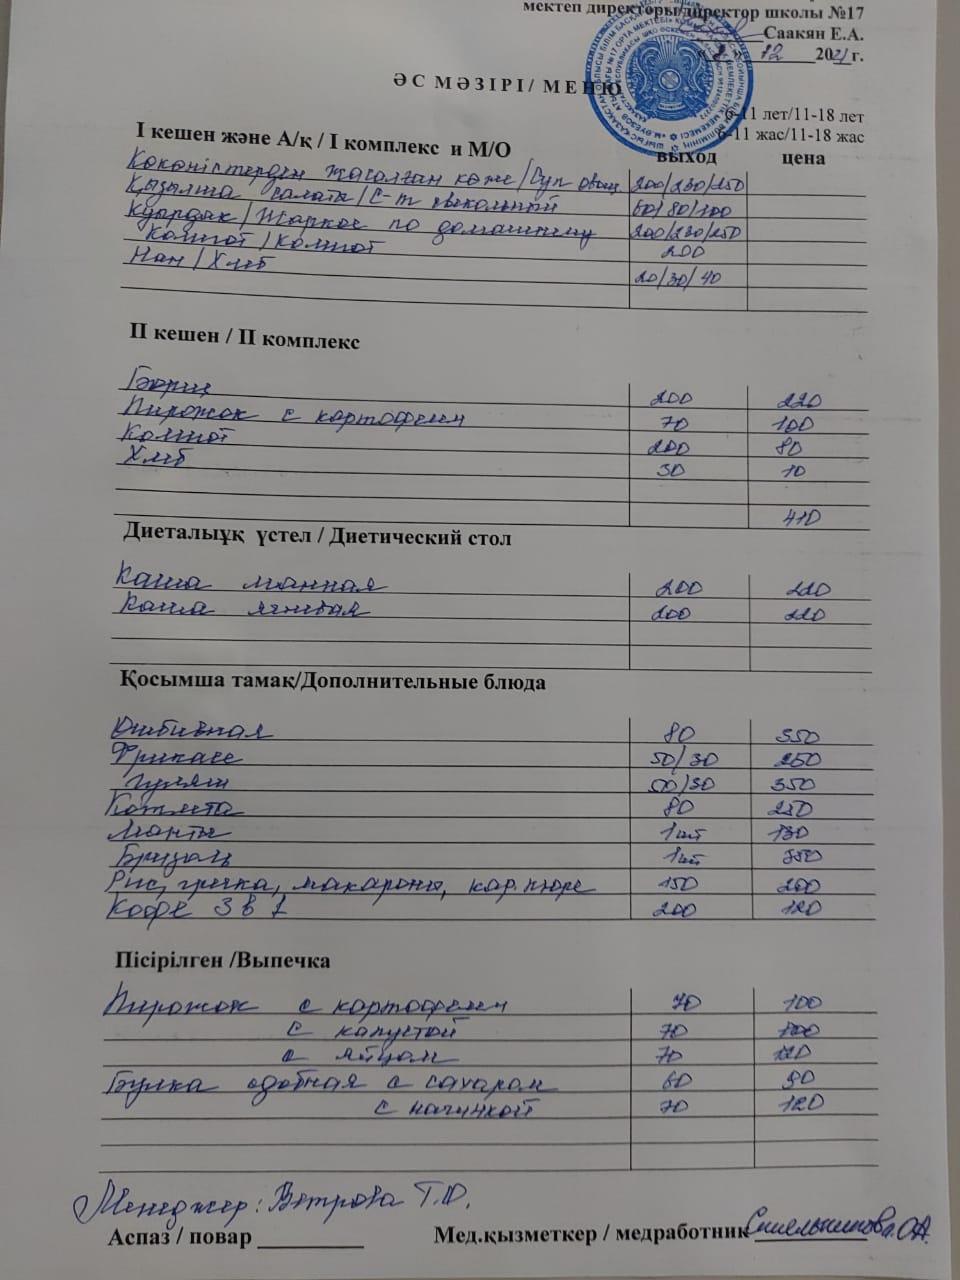 мектеп директоры/директор школы №17
Саакян Е.А.
12 2021г.
ӘС МӘЗІРІ/ МЕНЮ
6-11 лет/11-18 лет
6-11 жас/11-18 жас
І кешен және А/қ / І комплекс и М/О выход цена
Көкөністерден жасалған көже/Суп овощ 200/230/250
Қызылша салаты/С-т свекольный 60/80/100
Қуырдак/Жаркое по домашнему 200/230/250
Компот/Компот 200
Нан/Хлеб 20/30/40
ІІ кешен / ІІ комплекс
Борщ 200 220
Пирожок с картофелем 70 100
Компот 200 80
Хлеб 30 10
410
Диеталыұқ үстел / Диетический стол
Каша манная 200 220
Каша ячневая 200 220
Қосымша тамақ/Дополнительные блюда
Отбивная 80 350
Фрикасе 50/30 250
Гуляш 50/30 350
Котлета 80 250
Манты 1шт 130
Бризоль 1шт 350
Рис, гречка, макароны, кар.пюре 150 200
Кофе 3 в 1 200 120
Пісірілген /Выпечка
Пирожок с картофелем 70 100
с капустой 70 100
с яйцом 70 120
Булка сдобная с сахаром 60 90
с начинкой 70 120
Менеджер: Ветрова Т.Ю.
Аспаз / повар Мед.қызметкер / медработник